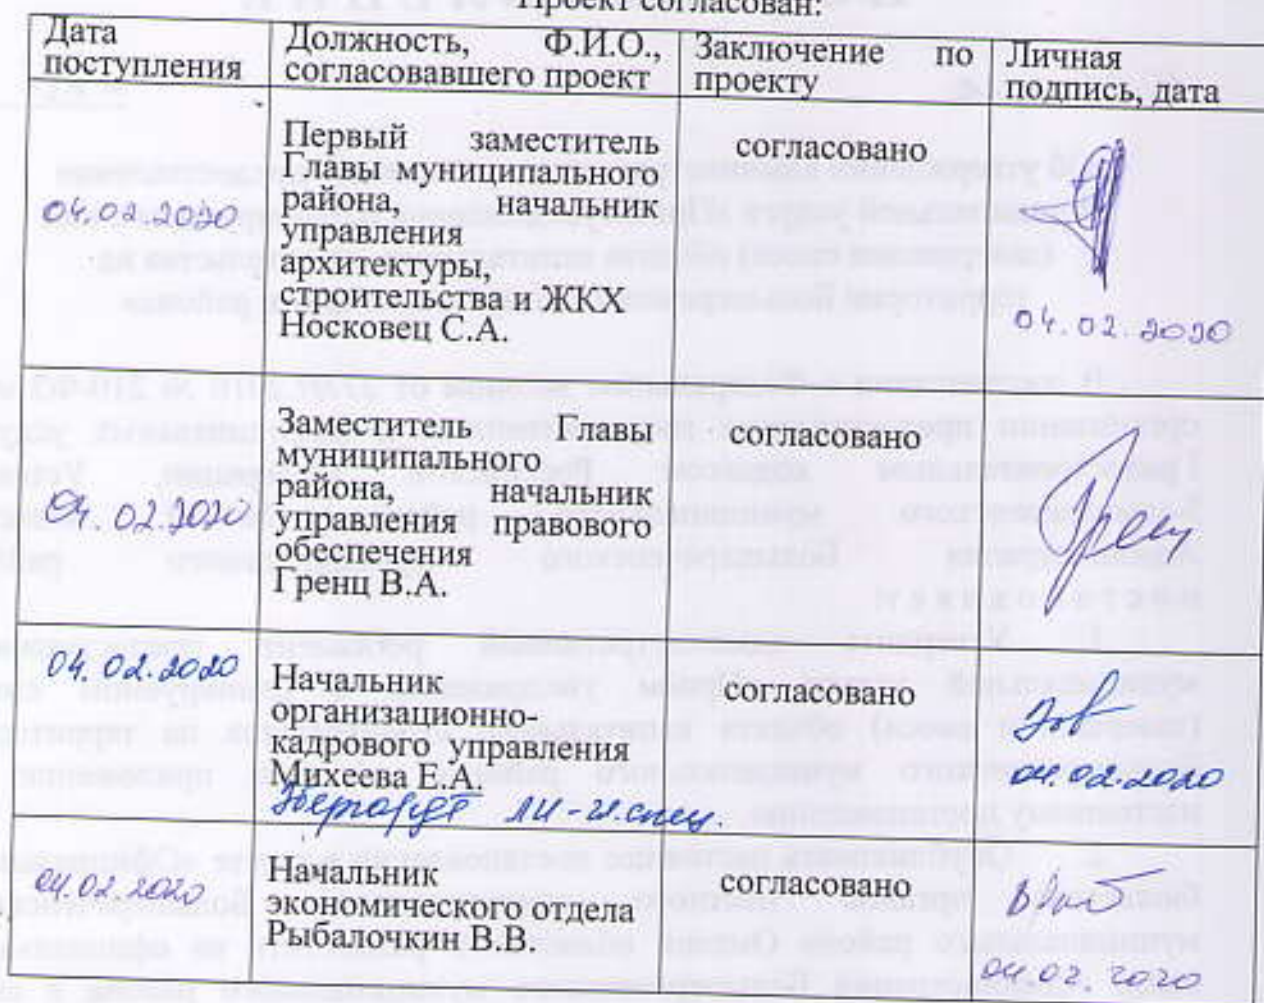 Проект согласован:
Дата
поступления
Должность, Ф.И.О.,
согласовавшего проект
Заключение по
проекту
Личная
подпись, дата
04.02.2020
Первый заместитель
Главы муниципального
района, начальник
управления
архитектуры,
строительства и ЖКХ
Носковец С.А.
согласовано
04.02.2020
04.02.2020
Заместитель Главы
муниципального
района, начальник
управления правового
обеспечения
Гренц В.А.
согласовано
04.02.2020
Начальник
организационно-
кадрового управления
Михеева Е.А.
согласовано
04.02.2020
04.02.2020
Начальник
экономического отдела
Рыбалочкин В.В.
согласовано
04.02.2020